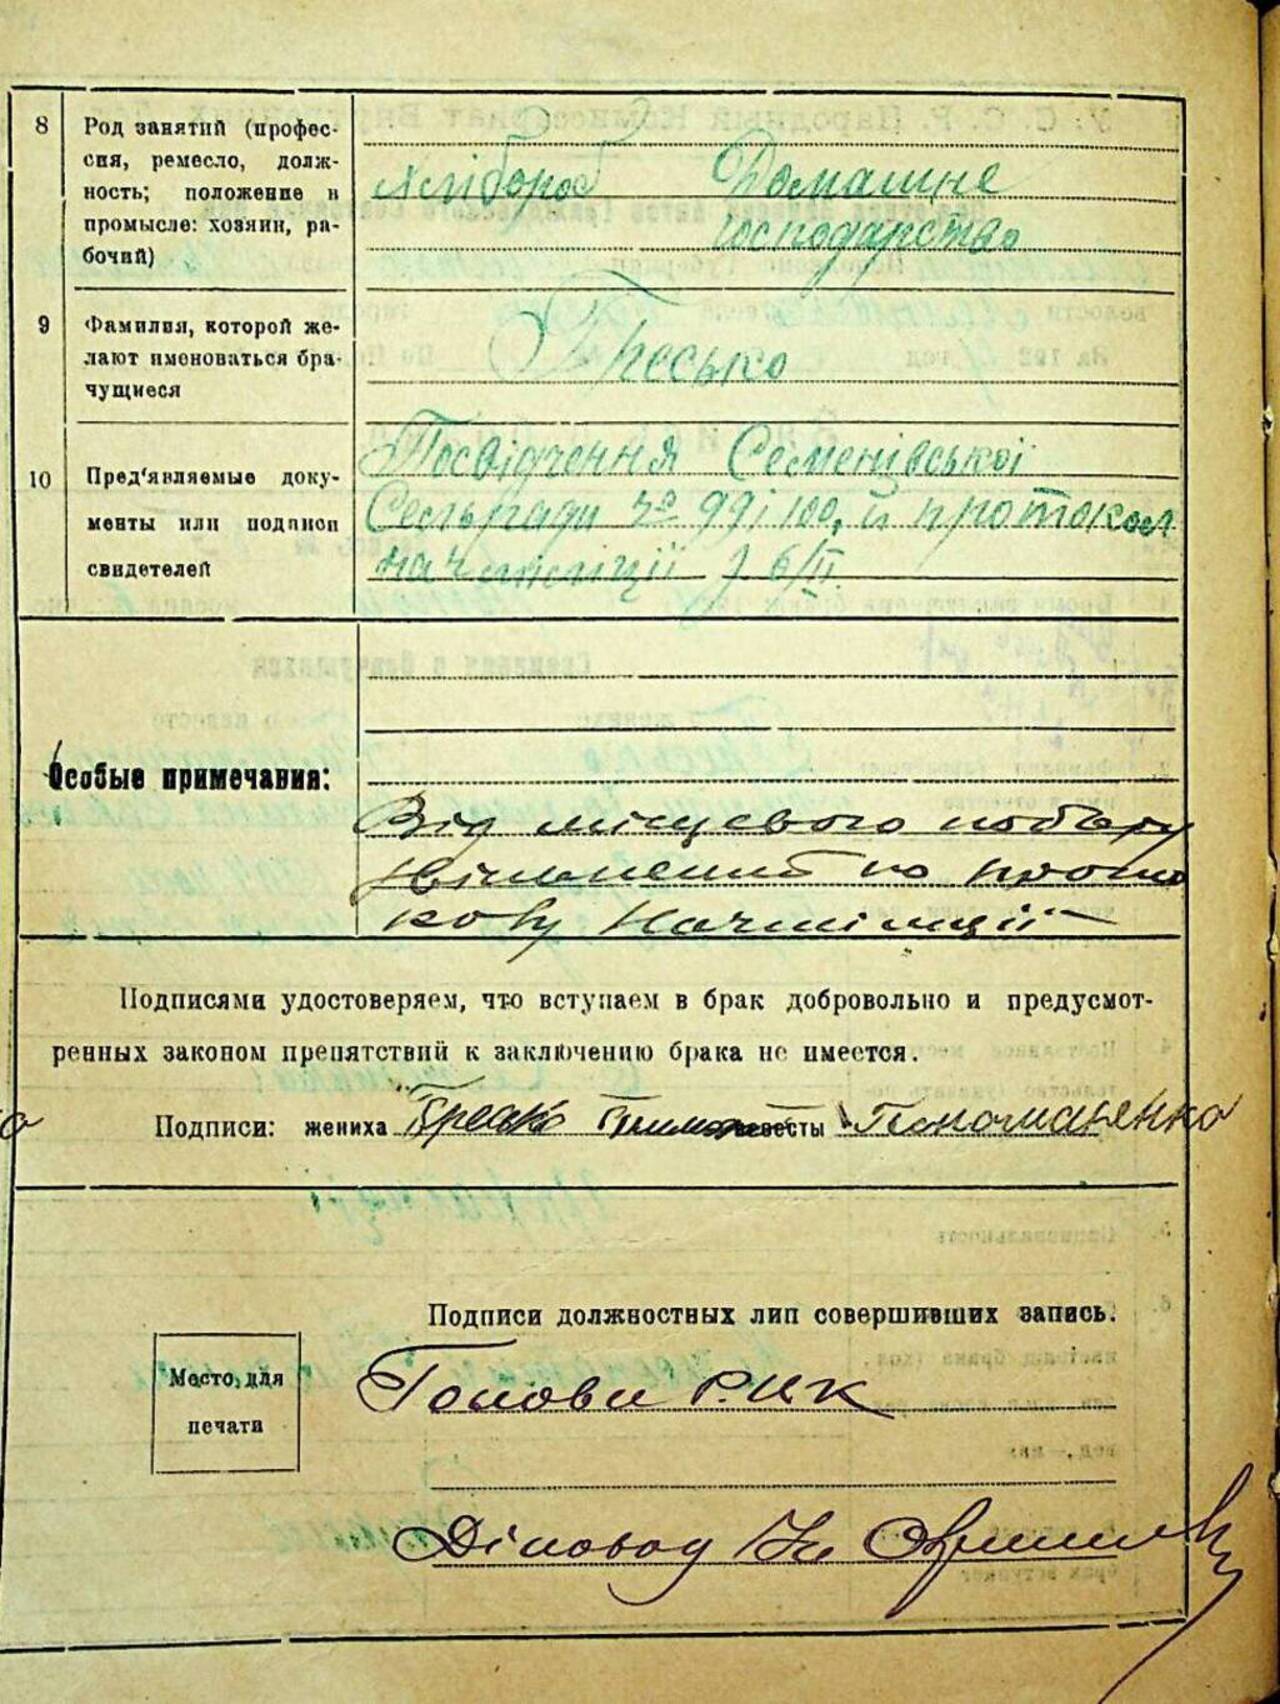 8
Род занятий (профессия, ремесло, должность; положение в промысле: хозяин, рабочий)
хлібороб Домашне
господарство
9
Фамилия, которой желают именоваться брачущиеся
Гресько
10
Пред'являемые документы или подписи свидетелей
Посвідчення Семенівської
Сельради № 99 і 100, й протокол
начміліції з 6/II
Особые примечания:
Від місцевого побору
звільнений по прото
колу Начміліції
Подписями удостоверяем, что вступаем в брак добровольно и предусмот-
ренных законом препятствий к заключению брака не имеется.
Подписи: жениха Гресько невесты Пономаренко
Подписи должностных лип совершивших запись.
Место для
печати
Голова Р.И.К
Діловод